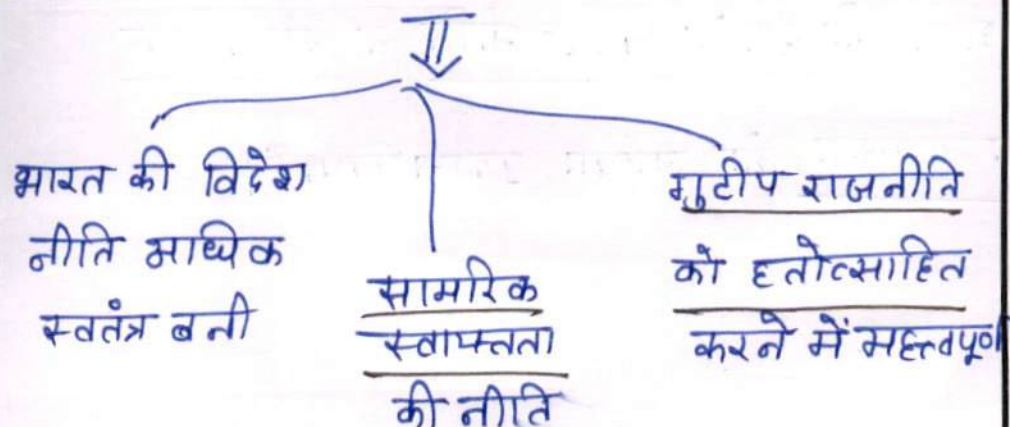 भारत की विदेश
नीति अधिक
स्वतंत्र बनी
सामरिक
स्वायत्तता
की नीति
गुटीय राजनीति
को हतोत्साहित
करने में महत्त्वपूर्ण